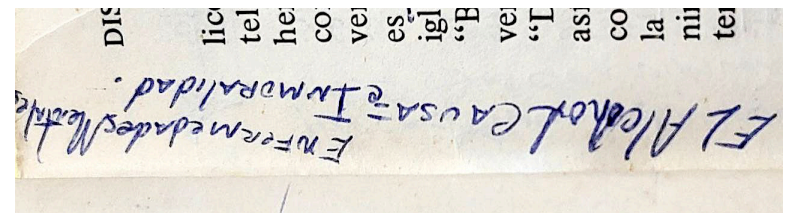 EL Alcohol CAUSA =
ENFERMEDADES Mentales
e INMORALIDAD.
DIS
lico
tel
her
co
ver
es
igl
“B
ver
“L
asi
co
la
nin
ter